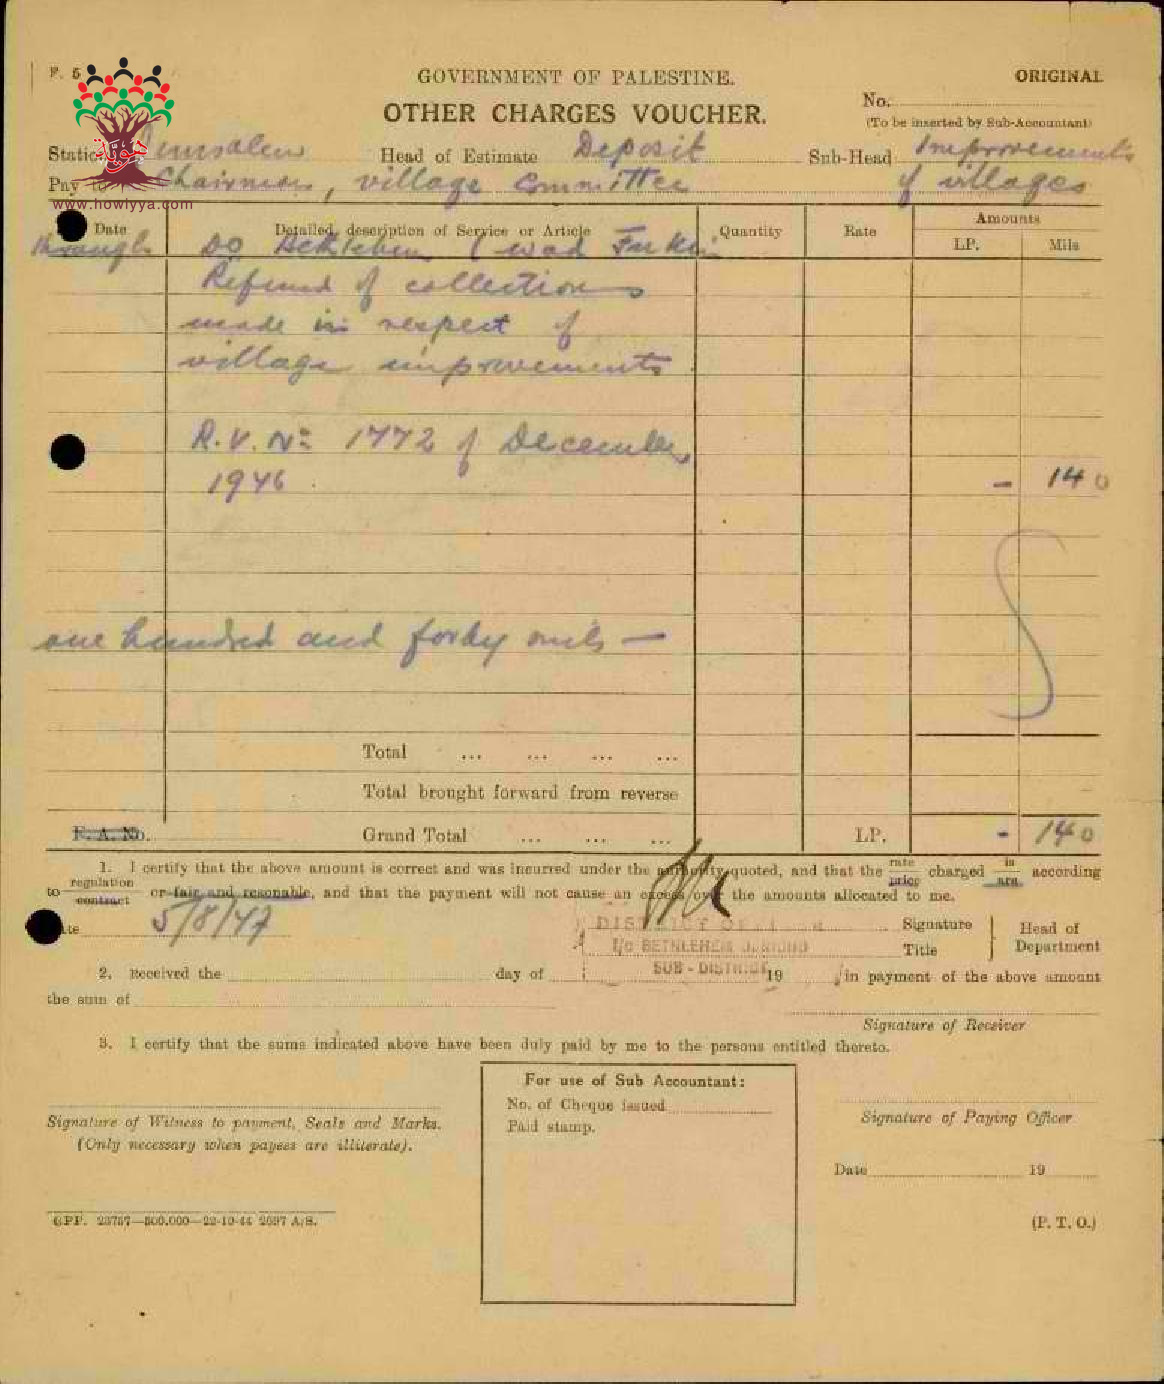 F. 5
GOVERNMENT OF PALESTINE.
ORIGINAL
OTHER CHARGES VOUCHER.
No.
(To be inserted by Sub-Accountant)
Station Jerusalem Head of Estimate Deposit Sub-Head Improvements
Pay to Chairman, village committee of villages
www.howiyya.com
Date Detailed description of Service or Article Quantity Rate Amounts
LP. Mils
through DO Bethlehem (Wad Fukin
Refund of collections
made in respect of
village improvements.
R.V. No 1772 of December,
1946 - 140
one hundred and forty mils —
Total ... ... ... ...
Total brought forward from reverse
F. A. No. Grand Total ... ... ... LP. - 140
1. I certify that the above amount is correct and was incurred under the authority quoted, and that the rate price charged is are according
to regulation contract or fair and resonable, and that the payment will not cause an excess over the amounts allocated to me.
Date 5/8/47
DISTRICT OFFICER Signature Head of
I/c BETHLEHEM Title Department
SUB - DISTRICT
2. Received the day of 19 in payment of the above amount
the sum of
Signature of Receiver
3. I certify that the sums indicated above have been duly paid by me to the persons entitled thereto.
For use of Sub Accountant:
No. of Cheque issued
Paid stamp.
Signature of Witness to payment, Seals and Marks.
(Only necessary when payees are illiterate).
Signature of Paying Officer
Date 19
GPP. 23757—500.000—22-10-44 2697 A/S.
(P. T. O.)